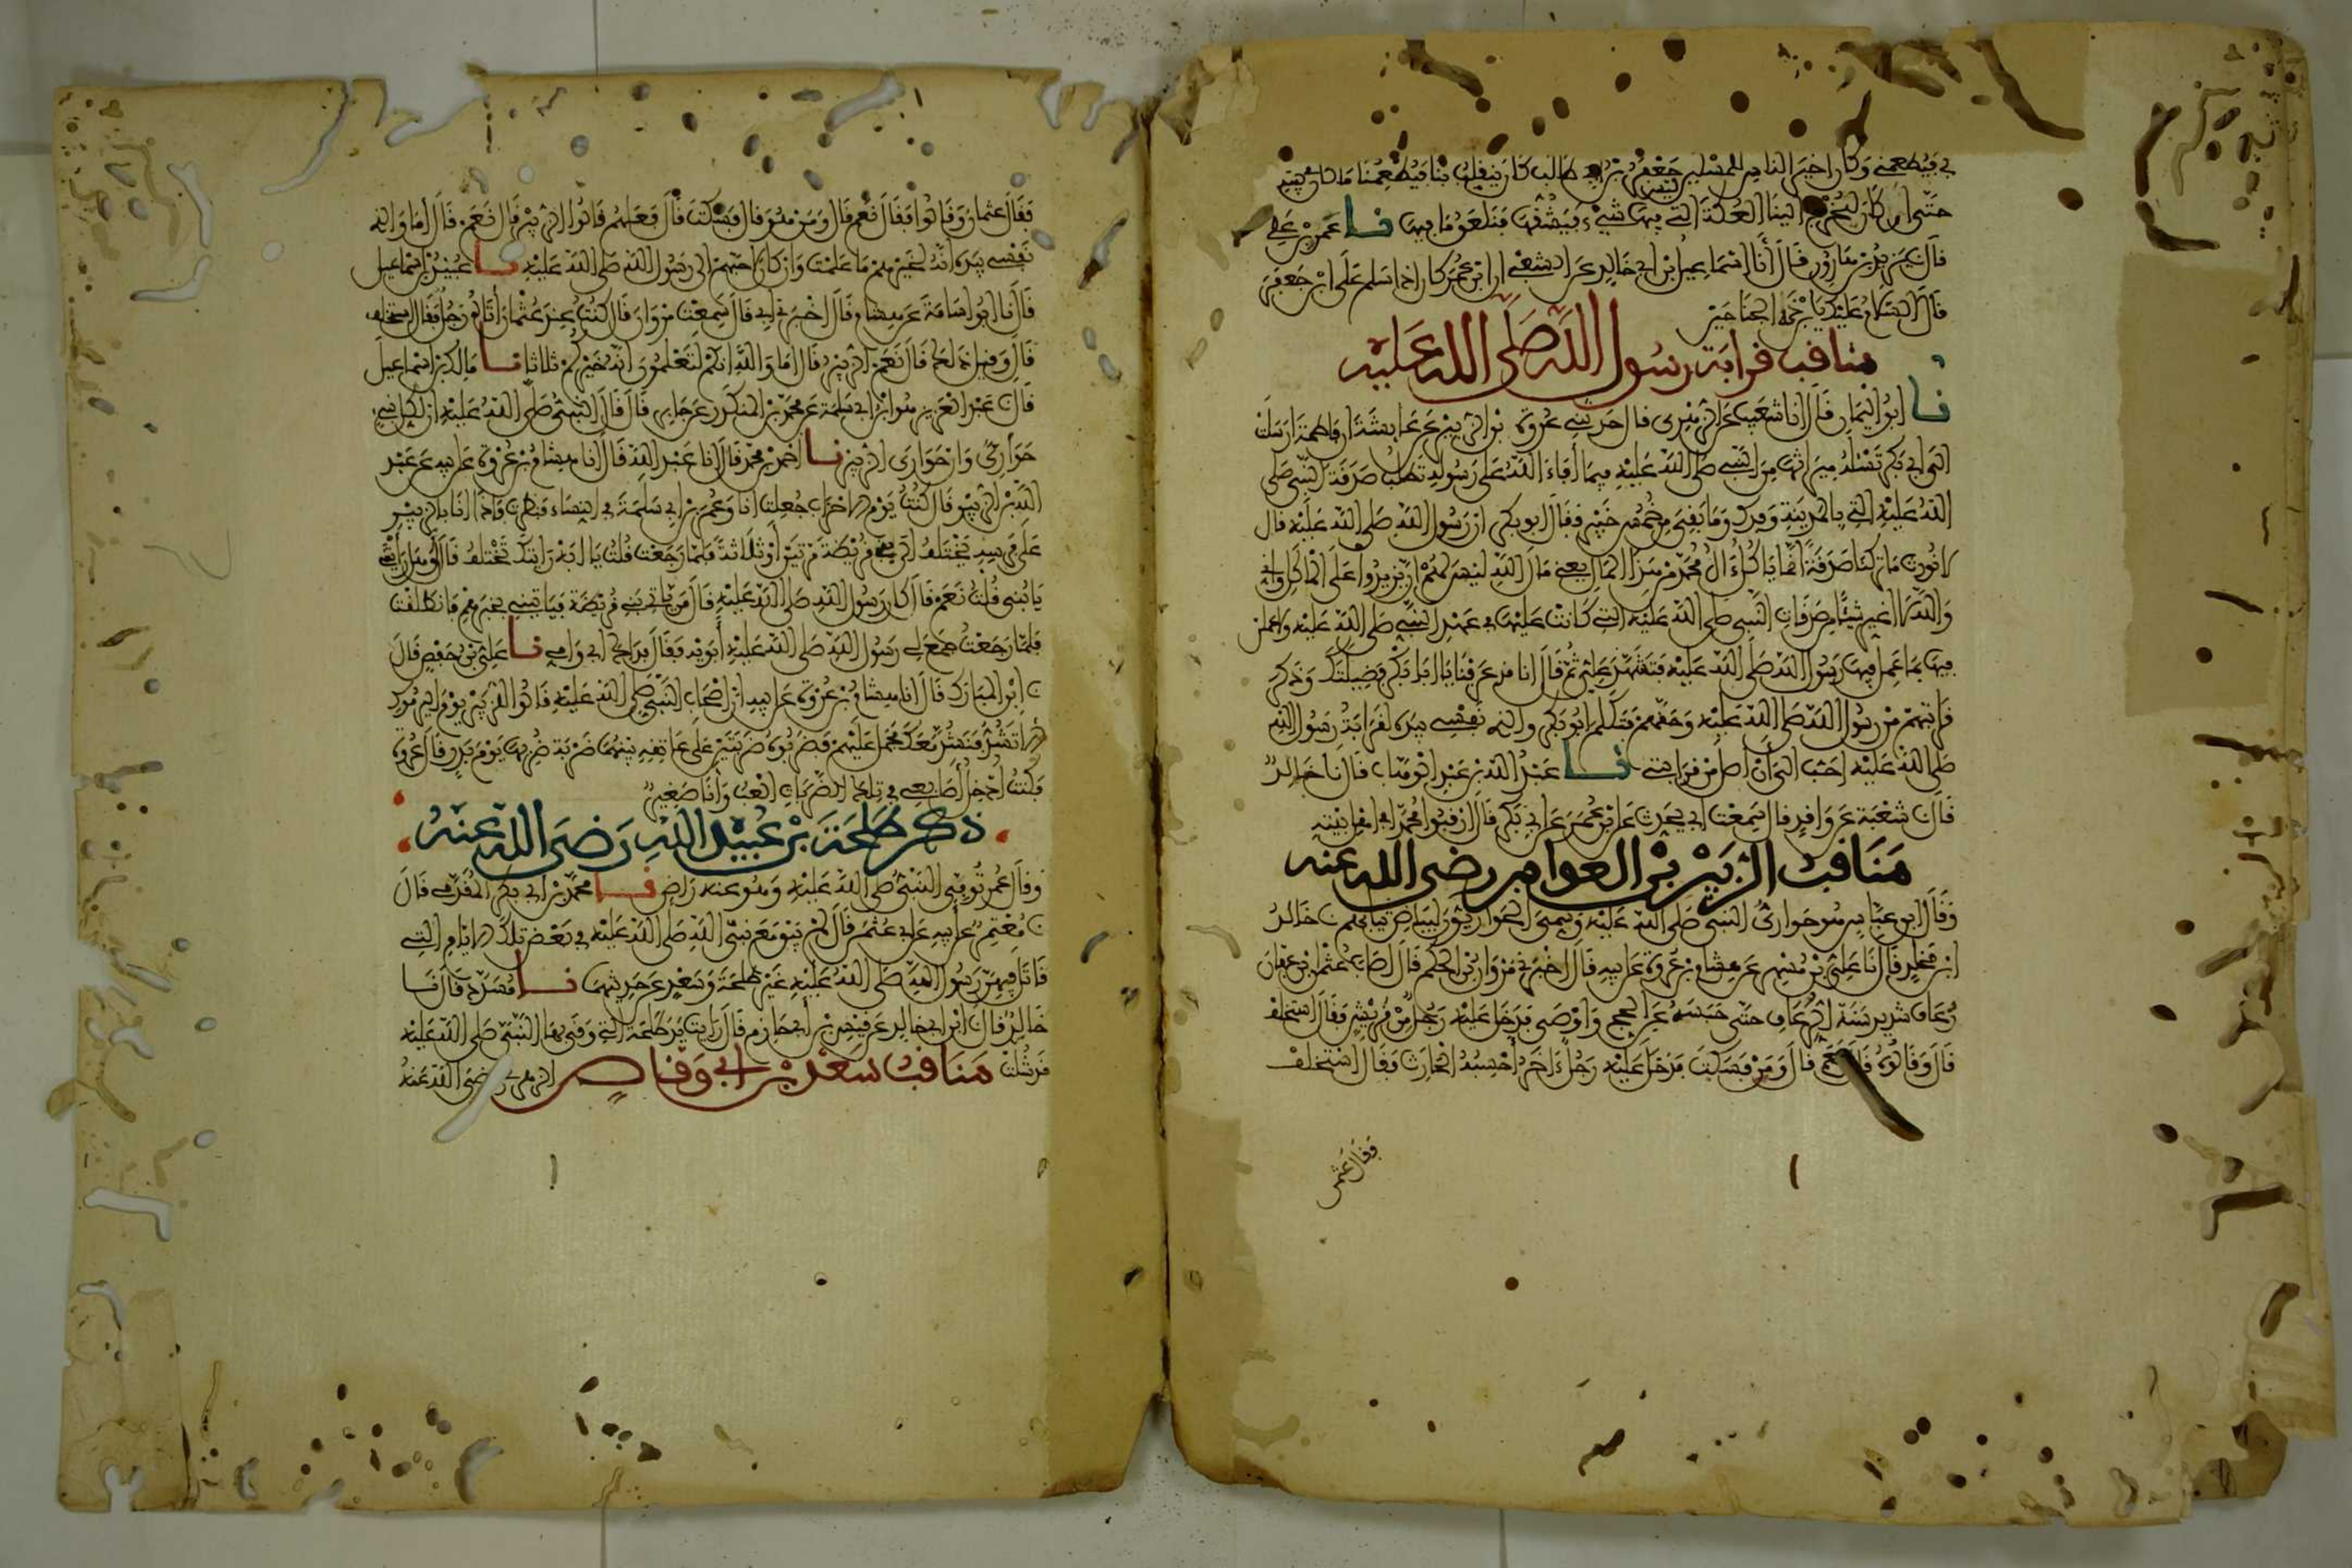 في فيطعمني وكان اخير الناس للمسكين جعفر بن ابي طالب كان ينقلب بنا فيطعمنا ما كان في بيته
حتى ان كان ليخرج الينا العكة التي ليس فيها شيء فيشقها فنلعق ما فيها نا عمرو بن علي
قال نا يزيد بن هارون قال أنا اسماعيل ابن ابي خالد عن الشعبي ان ابن عمر كان اذا سلم على ابن جعفر
قال السلام عليك يا ابن ذي الجناحين
مناقب قرابة رسول الله صلى الله عليه
نا ابو اليمان قال أنا شعيب عن الزهري قال حدثني عروة بن الزبير عن عايشة ان فاطمة ارسلت
الى ابي بكر تسئله ميراثها من النبي صلى الله عليه فيما أفاء الله على رسوله تطلب صدقة النبي صلى
الله عليه التي بالمدينة وفدك وما بقي من خمس خيبر فقال ابو بكر ان رسول الله صلى الله عليه قال
لا نورث ما تركنا صدقة انما ياكل ءال محمد من هذا المال يعني مال الله ليس لهم ان يزيدوا على الماكل واني
والله لا اغير شيئا من صدقات النبي صلى الله عليه التي كانت عليها في عهد النبي صلى الله عليه ولاعملن
فيها بما عمل فيها رسول الله صلى الله عليه فتشهد علي ثم قال انا قد عرفنا يا ابا بكر فضيلتك وذكر
قرابتهم من رسول الله صلى الله عليه وحقهم فتكلم ابو بكر والذي نفسي بيده لقرابة رسول الله
صلى الله عليه احب الي أن اصل من قرابتي نا عبد الله بن عبد الوهاب قال نا خالد
قال نا شعبة عن واقد قال سمعت ابي يحدث عن ابن عمر عن ابي بكر قال ارقبوا محمدا في اهل بيته
مناقب الزبير بن العوام رضي الله عنه
وقال ابن عباس هو حواري النبي صلى الله عليه وسمي الحواريون لبياض ثيابهم نا خالد
ابن مخلد قال نا علي بن مسهر عن هشام بن عروة عن ابيه قال اخبرني مروان بن الحكم قال اصاب عثمن ابن عفان
رعاف شديد سنة الرعاف حتى حبسه عن الحج واوصى فدخل عليه رجل من قريش فقال استخلف
قال وقالوه قال نعم قال ومن فسكت فدخل عليه رجل ءاخر أحسبه الحارث فقال استخلف
فقال عثمن
فقال عثمان وقالوا فقال نعم قال ومن هو قال فسكت قال فلعلهم قالوا الزبير قال نعم قال أما والذي
نفسي بيده انه لخيرهم ما علمت وان كان احبهم الى رسول الله صلى الله عليه نا عبيد بن اسماعيل
قال نا ابو اسامة عن هشام قال اخبرني ابي قال سمعت مروان قال كنت عند عثمان أتاه رجل فقال استخلف
قال وقيل ذلك قال نعم الزبير قال اما والله انكم لتعلمون انه خيركم ثلاثا نا مالك بن اسماعيل
قال نا عبد العزيز هو ابن ابي سلمة عن محمد بن المنكدر عن جابر قال قال النبي صلى الله عليه ان لكل نبي
حواري وان حواري الزبير نا احمد بن محمد قال أنا عبد الله قال أنا هشام بن عروة عن ابيه عن عبد
الله بن الزبير قال كنت يوم الاحزاب جعلت انا وعمر بن ابي سلمة في النساء فنظرت فاذا انا بالزبير
على فرسه يختلف الى بني قريظة مرتين او ثلاثة فلما رجعت قلت يا ابه رايتك تختلف قال أوهل رأيتني
يا بني قلت نعم قال كان رسول الله صلى الله عليه قال من ياتي بني قريظة فياتيني بخبرهم فانطلقت
فلما رجعت جمع لي رسول الله صلى الله عليه أبويه فقال فداك ابي وامي نا علي بن حفص قال
نا ابن المبارك قال انا هشام بن عروة عن ابيه ان اصحاب النبي صلى الله عليه قالوا للزبير يوم اليرموك
الا تشد فنشد معك فحمل عليهم فضربوه ضربتين على عاتقه بينهما ضربة ضربها يوم بدر قال عروة
فكنت أدخل أصابعي في تلك الضربات العب وأنا صغير
ذكر طلحة بن عبيد الله رضي الله عنه
وقال عمر توفي النبي صلى الله عليه وهو عنه راض نا محمد بن ابي بكر المقدمي قال
نا معتمر عن أبيه عن ابي عثمن قال لم يبق مع نبي الله صلى الله عليه في بعض تلك الايام التي
قاتل فيهن رسول الله صلى الله عليه غير طلحة وسعد عن حديثهما نا مسدد قال نا
خالد قال نا ابن ابي خالد عن قيس بن أبي حازم قال رايت يد طلحة التي وقى بها النبي صلى الله عليه
قد شلت مناقب سعد بن ابي وقاص الزهري رضي الله عنه